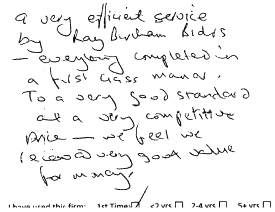 a very efficient service
by Ray Birham Bldrs
– everything completed in
a first class manor.
To a very good standard
at a very competitive
price – we feel we
received very good value
for money.
I have used this firm: 1st Time <2 yrs 2-4 yrs 5+ yrs